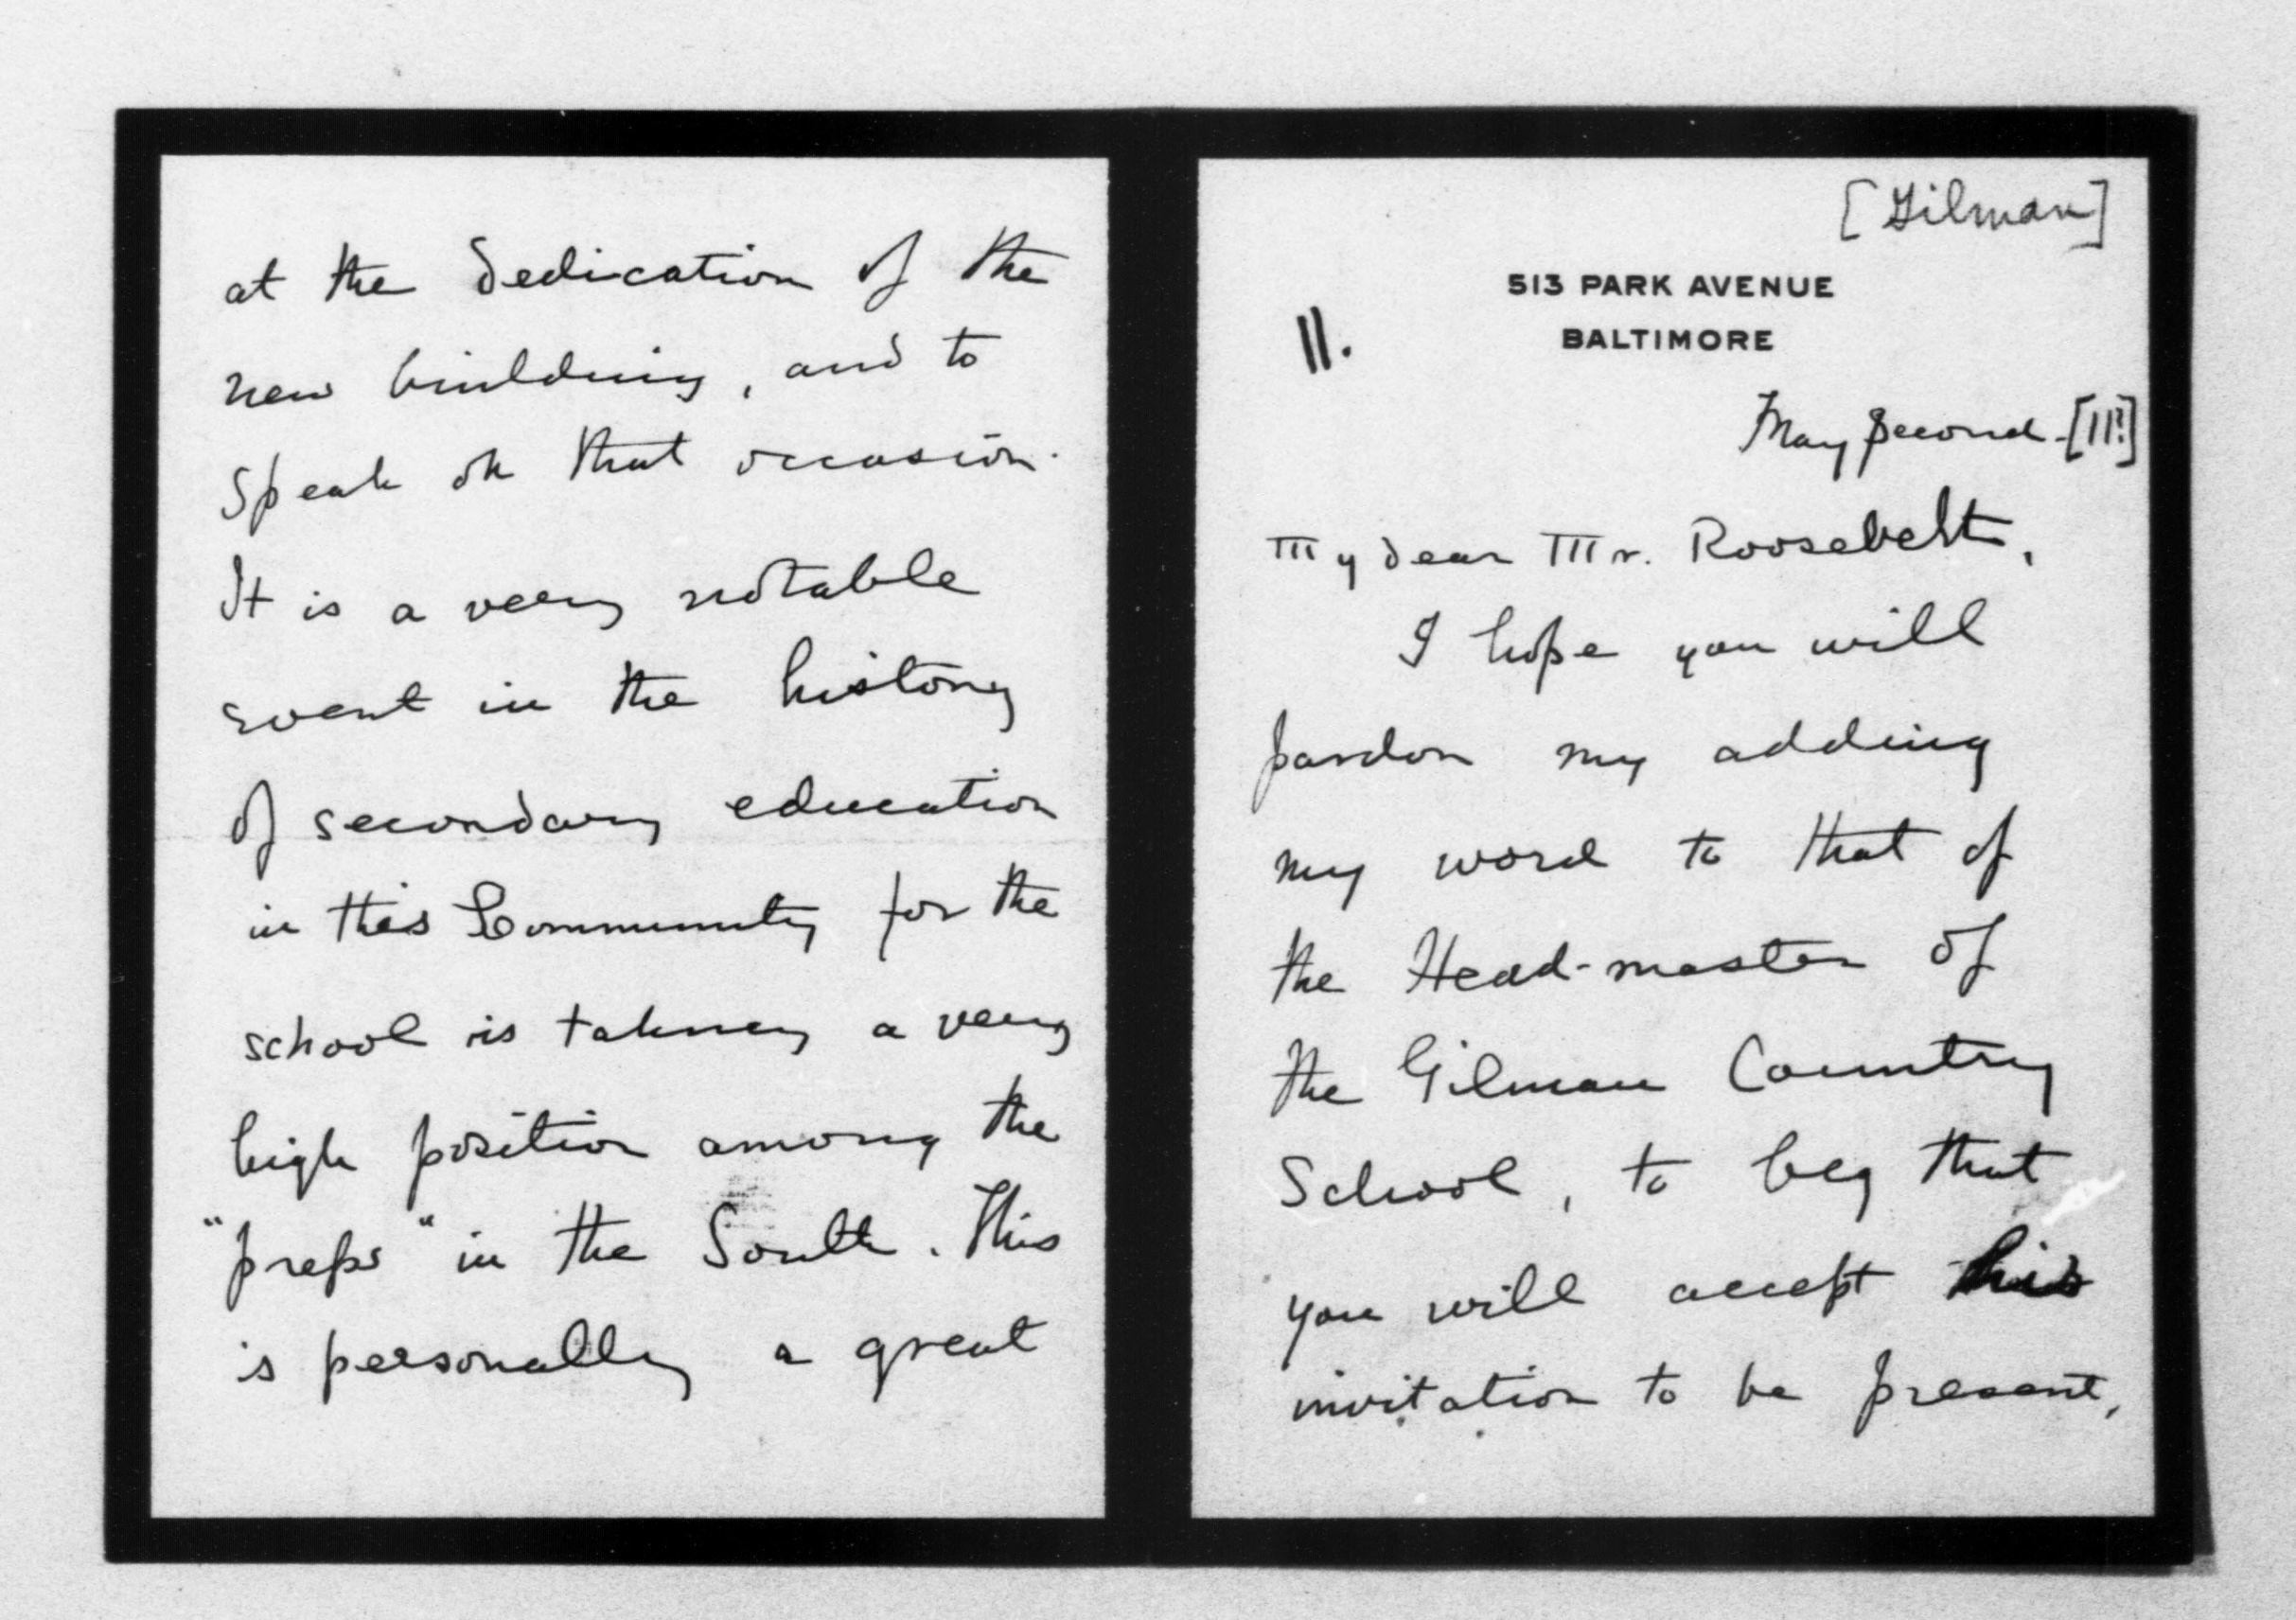 [Gilman]
513 PARK AVENUE
BALTIMORE
11.
May second-[11?]
My dear Mr. Roosevelt,
I hope you will
pardon my adding
my word to that of
the Head-master of
the Gilman Country
School, to beg that
you will accept his
invitation to be present,
at the dedication of the
new building, and to
speak on that occasion.
It is a very notable
event in the history
of secondary education
in this Community for the
school is taking a very
high position among the
"preps" in the South. This
is personally a great